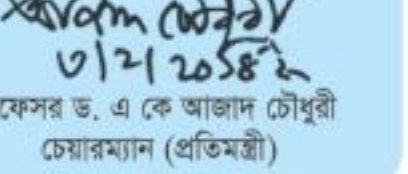 আজাদ চৌধুরী
৩/২/২০১৪ ইং
ফেসর ড. এ কে আজাদ চৌধুরী
চেয়ারম্যান (প্রতিমন্ত্রী)